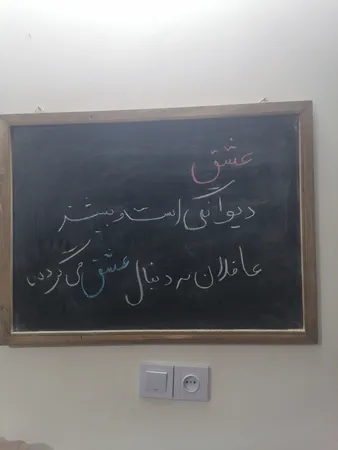 عشق
دیوانگی است و بیشتر
عاقلان به دنبال عشق می گردند